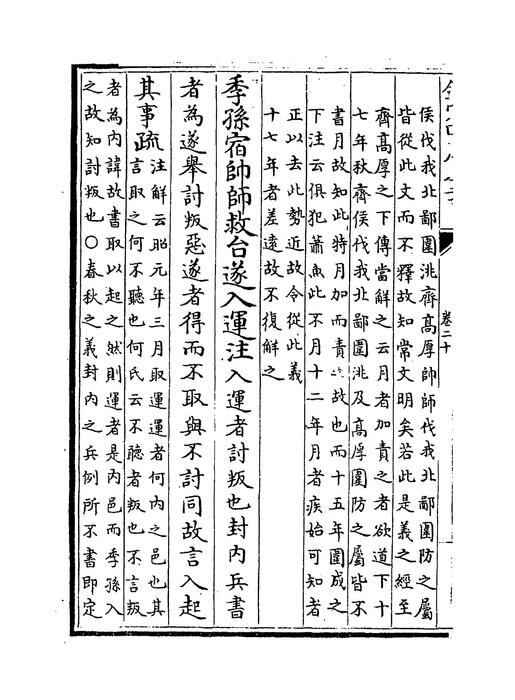 侯伐我北鄙圍洮齊髙厚帥師伐我北鄙圍防之屬
皆從此文而不釋故知常文明矣若此是義之經至
齊髙厚之下傳當解之云月者加責之者欲道下十
七年秋齊侯伐我北鄙圍洮及髙厚圍防之屬皆不
書月故知此特月加而責之故也而十五年圍成之
下注云俱犯蕭魚此不月十二年月者疾始可知者
正以去此勢近故令從此義
十七年者差逺故不復解之
季孫宿帥師救台遂入運注入運者討叛也封内兵書
者為遂舉討叛惡遂者得而不取與不討同故言入起
其事疏注解云昭元年三月取運運者何内之邑也其
言取之何不聽也何氏云不聽者叛也不言叛
者為内諱故書取以起之然則運者是内邑而季孫入
之故知討叛也○春秋之義封内之兵例所不書即定
卷二十